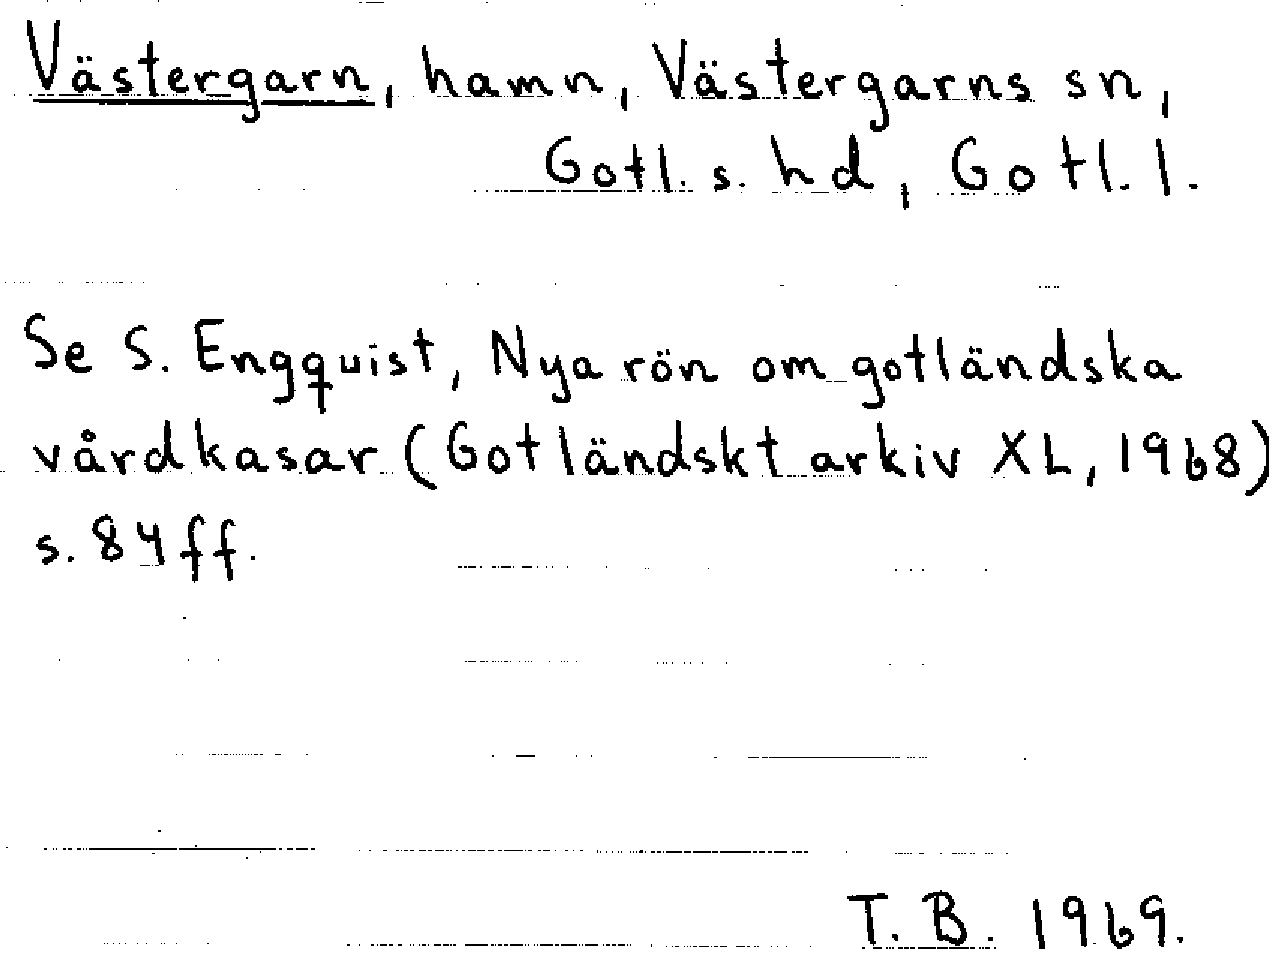 Västergarn, hamn, Västergarns sn,
Gotl. s. hd, Gotl. l.
Se S. Engquist, Nya rön om gotländska
vårdkasar (Gotländskt arkiv XL, 1968)
s. 84 ff.
T. B. 1969.